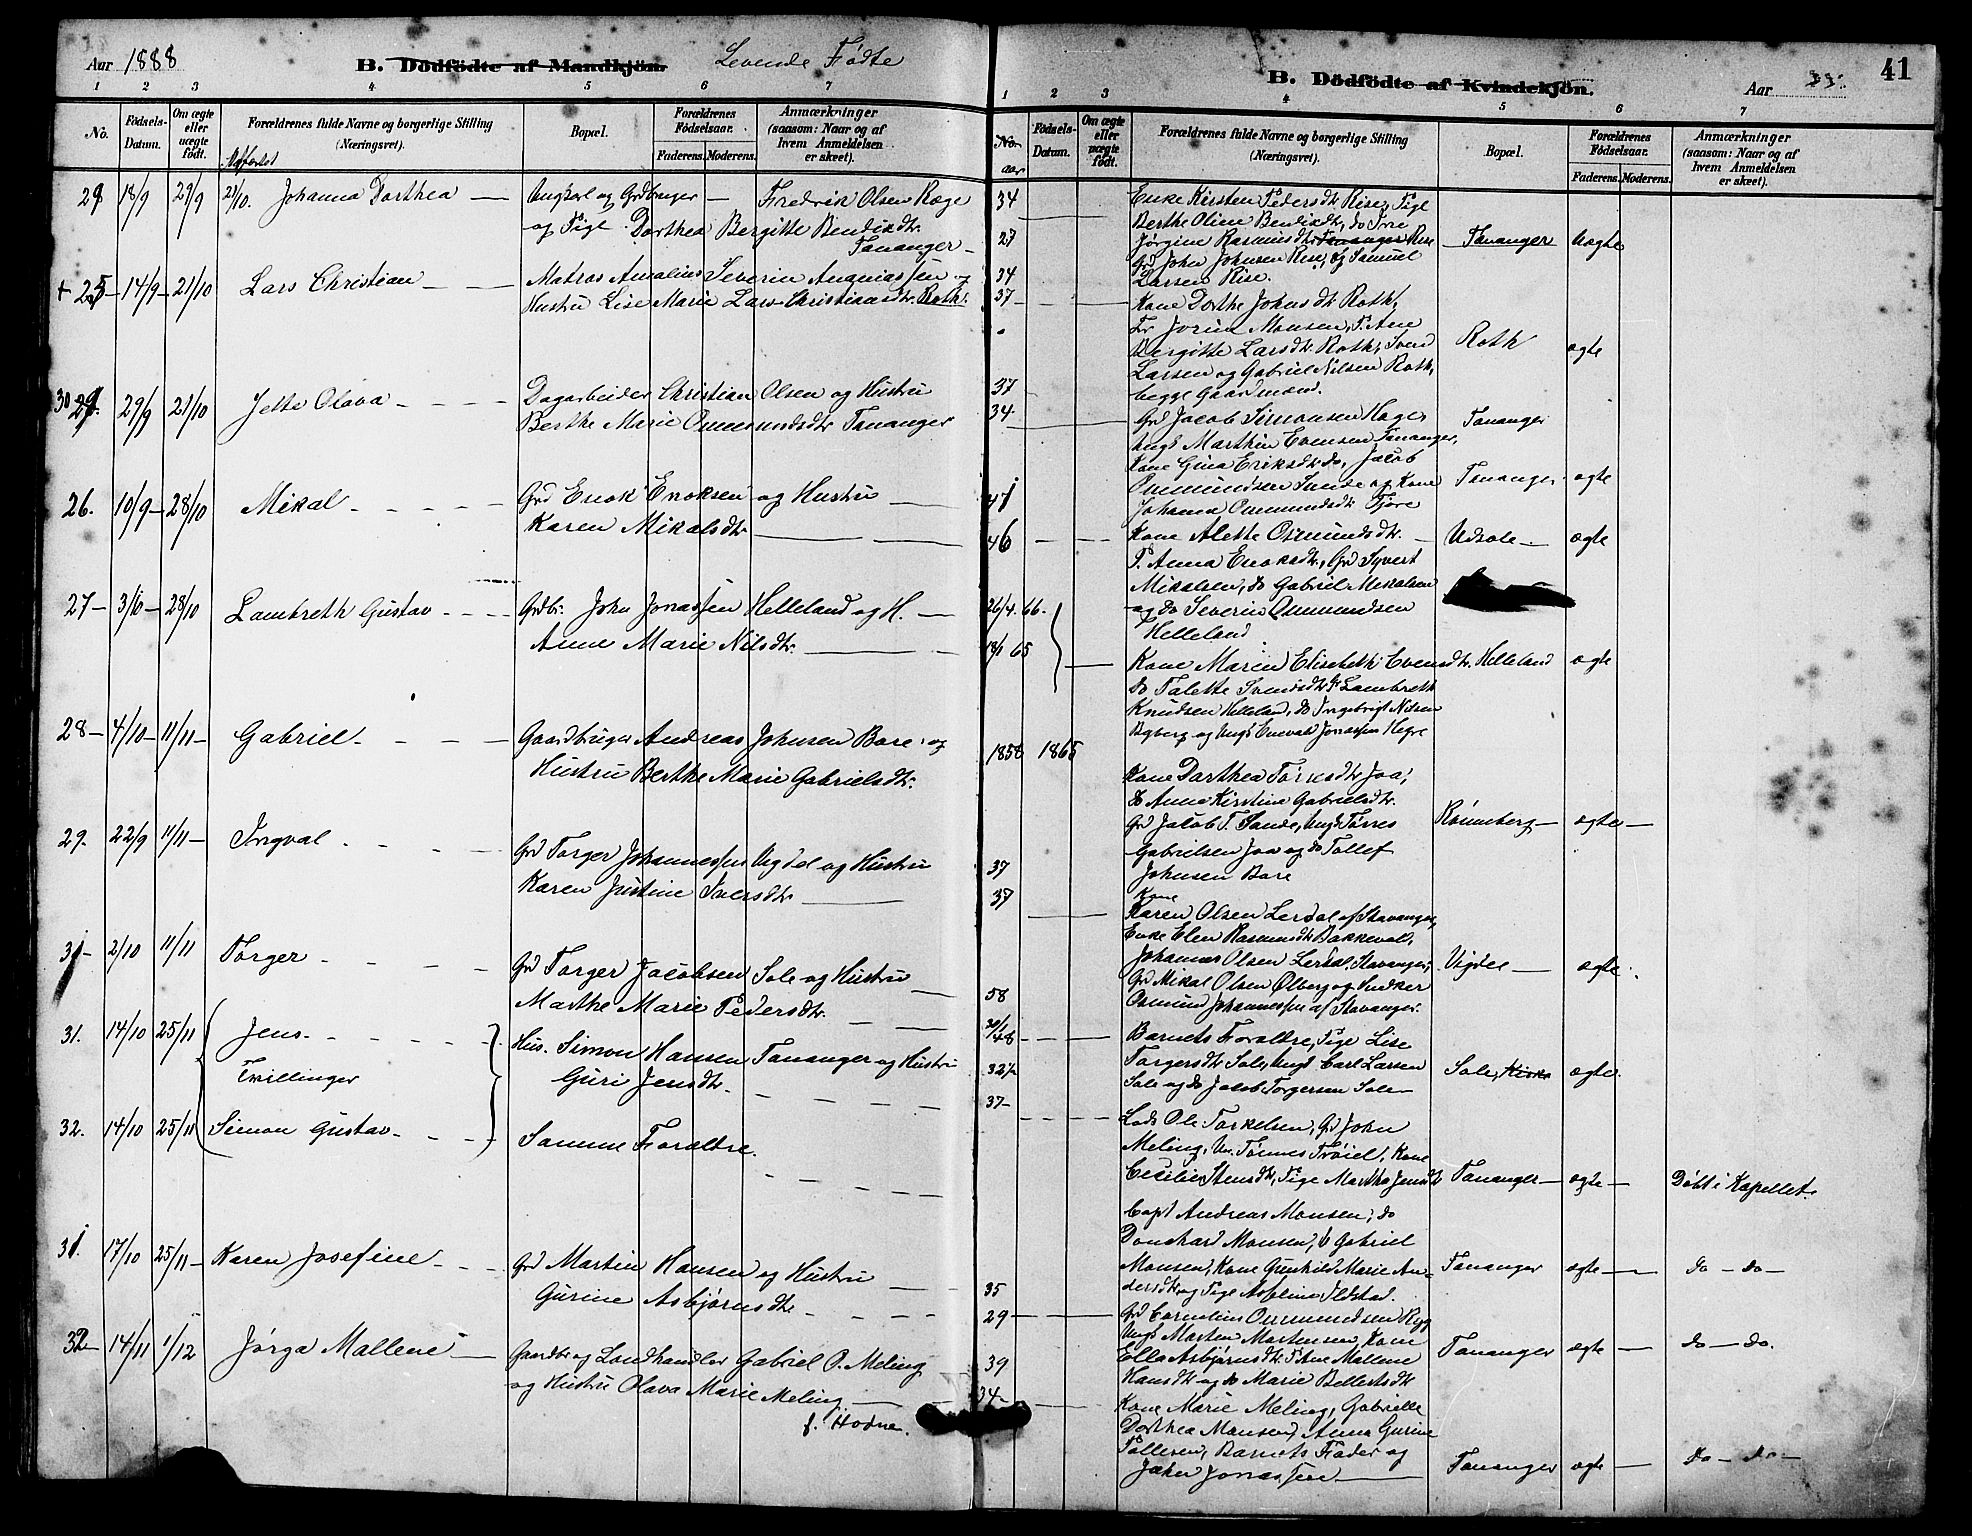 Aar 1888
B. Dödfödte af Mandkjön. Levende Födte
1 2 3 4 5 6 7
No.
Födsels-Datum.
Om ægte eller uægte födt.
Forældrenes fulde Navne og borgerlige Stilling (Næringsvei).
Bopæl.
Forældrenes Födselsaar.
Faderens. Moderens.
Anmærkninger (saasom: Naar og af hvem Anmeldelsen er skeet).
29 18/9 29/9 21/10. Johanna Dorthea — Ungkarl og Grdbruger — Fredrik Olsen Ræge
og Pige Dorthea Bergitte Bendixdtr.
Tananger —
+ 25 — 14/9 — 21/10 Lars Christian — — Matros Amalius Severin Ananiassen og
Hustru Lise Marie Lars Christiandtr Roth.
30 29/9 21/10 Jette Olava — — — — Dagarbeider Christian Olsen og Hustru
Berthe Marie Ommundsdtr Tananger
26. 10/9 — 28/10 Mikal — — — — — Grd Enok Enoksen og Hustru
Karen Mikalsdtr.
27 — 3/10 — 28/10 Lambreth Gustav — — — Grdbr. John Jonassen Helleland og H. —
Anne Marie Nilsdtr.
28 — 4/10 — 11/11 — Gabriel — — — — Gaardbruger Andreas Johnsen Bore og
Hustru Berthe Marie Gabrielsdtr.
29. 22/9 11/11 — Ingval — — — Grd Torger Johannessen Vigdel og Hustru
Karen Justine Iversdtr
31 — 2/10 11/11 Torger — — — — Grd Torger Jacobsen Sole og Hustru
Marthe Marie Pedersdtr.
31. 14/10 25/11 Jens — — — — — Hus. Simon Hansen Tananger og Hustru
Tvillinger Guri Jensdtr.
32. 14/10 25/11 Simon Gustav — — — Samme Forældre.
31. 17/10 25/11 — Karen Josefine — — — Grd Martin Hansen og Hustru
Gurine Asbjørnsdtr
32 — 14/11 1/12 Jørga Mallene — Gaardbr og Landhandler Gabriel P. Meling
og Hustru Olava Marie Meling
f. Hodne.
41
B. Dödfödte af Kvindekjön. Aar
1 2 3 4 5 6 7
No.
Födsels-Datum.
Om ægte eller uægte födt.
Forældrenes fulde Navne og borgerlige Stilling (Næringsvei).
Bopæl.
Forældrenes Födselsaar.
Faderens. Moderens.
Anmærkninger (saasom: Naar og af hvem Anmeldelsen er skeet).
34 Enke Kirsten Pedersdtr Rise, Pige
Berthe Oline Bendixdtr, do
27 Jørgine Rasmusdtr Tananger Rise Tananger Uægte
Grd John Johnsen Rise, og Samuel
34 Larsen Rise.
37 — Kone Dorthe Johnsdtr Roth,
Monsen, P. Ane
Bergitte Larsdtr. Roth, Svend Roth ægte
Larsen og Gabriel Nilsen Roth,
37 begge Gaardmænd.
34 Grd Jacob Simonsen Haga, Tananger
Ungk Marthin Evensen Tananger,
Kone Gina Eriksdtr do, Jacob
47 Ommundsen Sunde og Kone Tananger ægte
Johanna Ommundsdtr Tjøre
46 — Kone Alette Osmundsdtr. — Udsole — ægte
P. Anna Enoksdtr, Grd Syvert
Mikalsen, do Gabriel Mikalsen
26/4 66. og do Severin Ommundsen
Helleland
18/1 65 Kone Maren Elisabeth Evensdtr. Helleland ægte
do Talette Svendsdtr, Lambreth
Knudsen Helleland, do Ingebrigt Nilsen
Byberg og Ungk Enevald Jonassen Hegre
1858 1865
Kone Dorthea Tørresdtr Joa,
do Anna Kirstine Gabrielsdtr.
Grd Jacob T. Sande, Ungk Tørres Rønneberg — ægte —
Gabrielsen Joa og do Tollef
37 Johnsen Bore
37 Kone
Karen Olsen Lerdal af Stavanger,
Enke Elen Rasmusdtr Bakkevold,
Johannes Olsen Lerdal, Stavanger, Vigdel — ægte.
Grd Mikal Olsen Ølberg og Snedker
58 Osmund Johannessen af Stavanger.
30/1 48 Barnets Forældre, Pige Lise
32 Torgersdtr Sole, Ungk Carl Larsen Sole, Kirke ægte.
Sole og do Jacob Torgersen Sole
37 —
Lods Ole Torkelsen, Grd John
Meling, Un. Tønnes Trøiel, Kone
Cecilie Stensdtr, Pige Martha Jensdtr Tananger — ægte — Døbt i Kapellet.
Capt Andreas Monsen, do
Monsen, Gabriel
Monsen, Kone Gunhild Marie An- Tananger ægte — do — do —
35 dersdtr, og Pige Ildstad.
29 — Grd Cornelius Ommundsen Myg
Ungk Morten Mortensen, Kone
39 Ella Asbjørnsdtr. P. Ane Mallene Tananger ægte — do — do.
Hansdtr og do Marie Bellertsdtr
34 — Kone Marie Meling, Gabrielle
Dorthea Monsen, Anna Gurine
Tollesen, Barnets Fader og
John Jonassen — Tananger ægte — do — do —